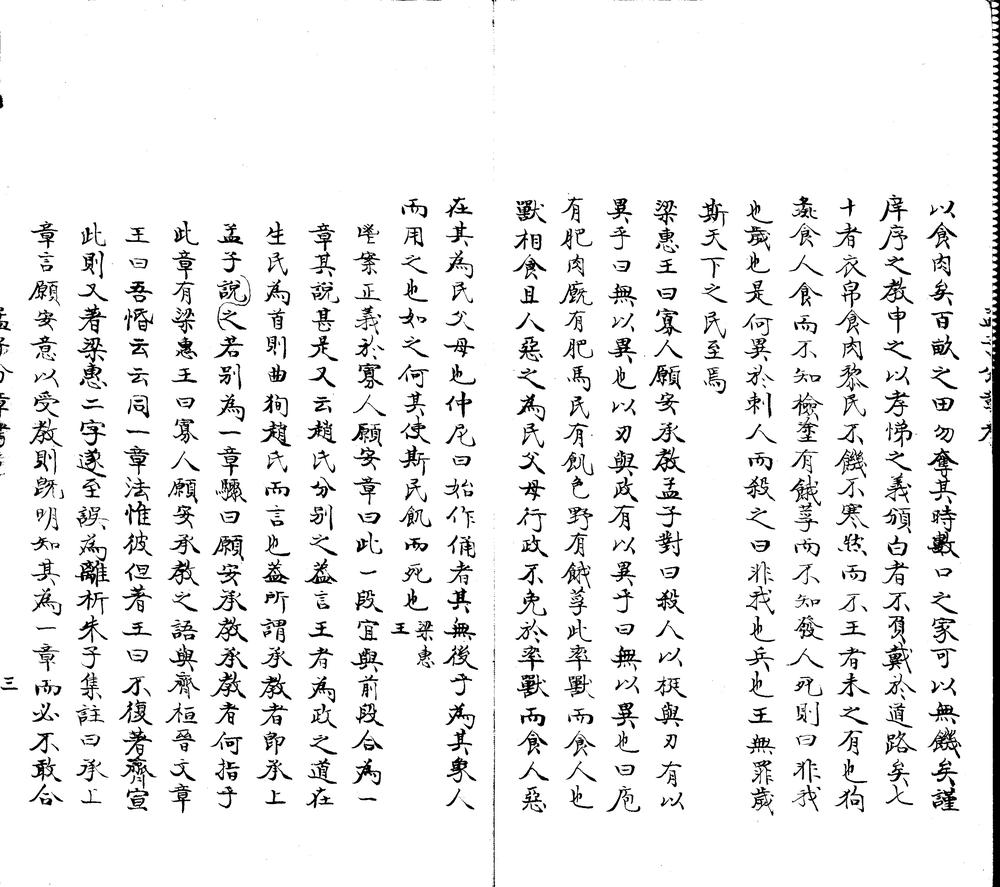 以食肉矣百畝之田勿奪其時數口之家可以無饑矣謹
庠序之教申之以孝悌之義頒白者不負戴於道路矣七
十者衣帛食肉黎民不饑不寒然而不王者未之有也狗
彘食人食而不知檢塗有餓莩而不知發人死則曰非我
也歲也是何異於刺人而殺之曰非我也兵也王無罪歲
斯天下之民至焉
梁惠王曰寡人願安承教孟子對曰殺人以梃與刃有以
異乎曰無以異也以刃與政有以異乎曰無以異也曰庖
有肥肉廐有肥馬民有飢色野有餓莩此率獸而食人也
獸相食且人惡之為民父母行政不免於率獸而食人惡
在其為民父母也仲尼曰始作俑者其無後乎為其象人
而用之也如之何其使斯民飢而死也梁惠王
馹案正義於寡人願安章曰此一段宜與前段合為一
章其說甚是又云趙民分別之益言王者為政之道在
生民為首則曲狥趙氏而言也益所謂承教者即承上
孟子說之若別為一章驟曰願安承教承教者何指乎
此章有梁惠王曰寡人願安承教之語與齊桓晉文章
王曰吾惛云云同一章法惟彼但著王曰不復著齊宣
此則又著梁惠二字遂至誤為離析朱子集註曰承上
章言願安意以受教則旣明知其為一章而必不敢合
孟子分章考
三